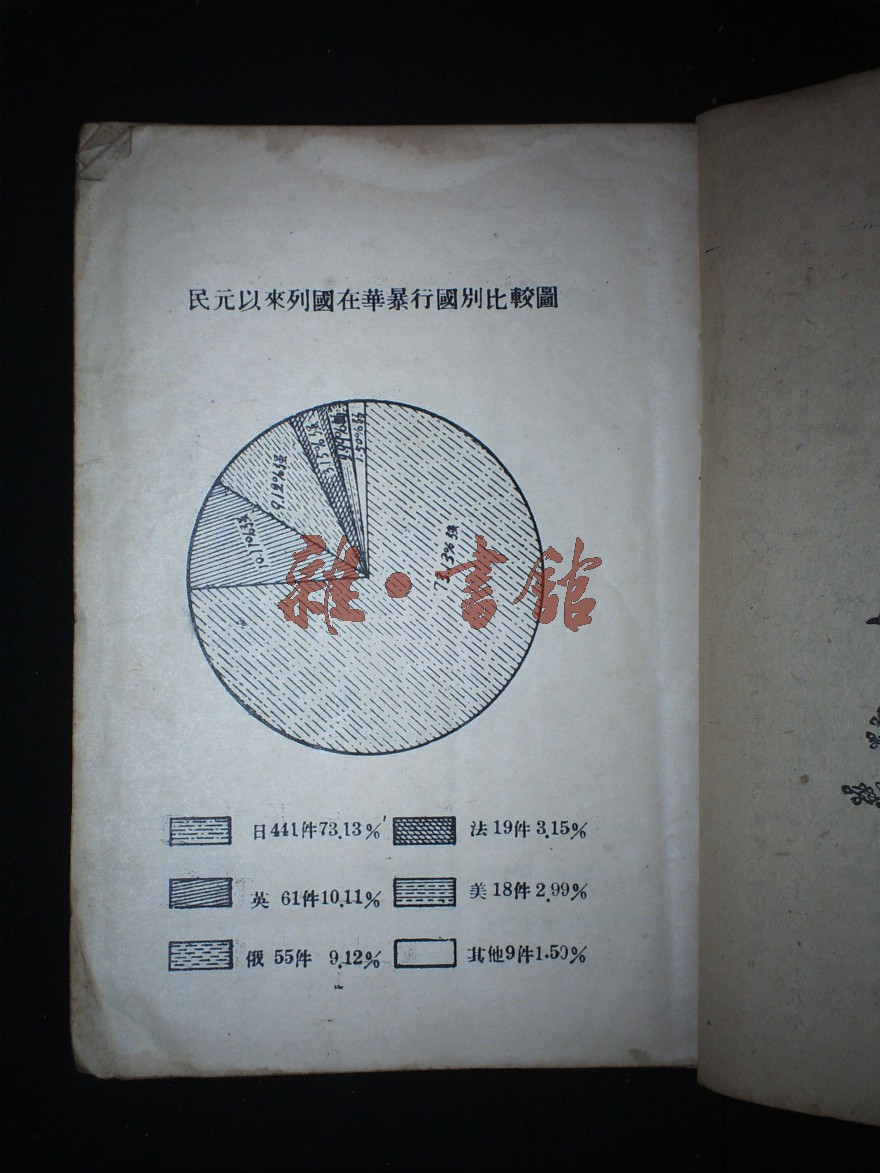 民元以來列國在華暴行國別比較圖
雜·書館
日441件73.13%
法19件3.15%
英 61件10.11%
美18件2.99%
俄 55件 9.12%
其他9件1.50%